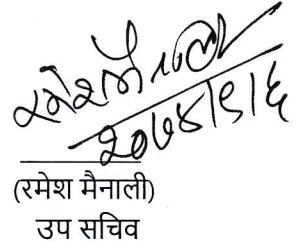 रमेश मैनाली
२०७४।९।६
(रमेश मैनाली)
उप सचिव